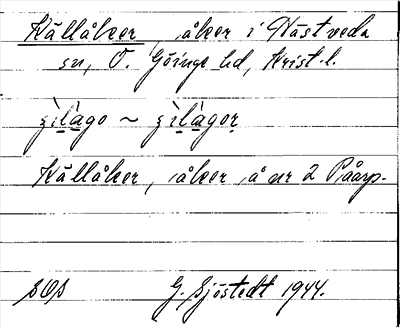 Källåker, åker i Hästveda
sn, Ö. Göinge hd, Krist.l.
Källåker, åker å nr 2 Påarp.
SOS G. Sjöstedt 1944.